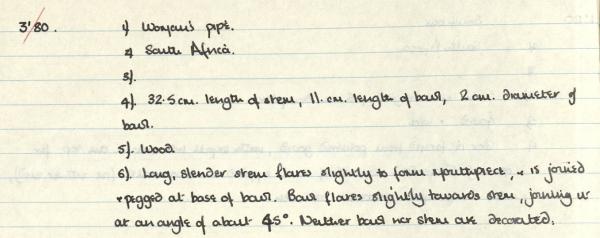 3'80. 1) Woman's pipe.
2 South Africa.
3).
4). 32.5cm. length of stem, 11.cm. length of bowl, 2cm. diameter of
bowl.
5). Wood
6). Long, slender stem flares slightly to form mouthpiece, + is joined
+ pegged at base of bowl. Bowl flares slightly towards stem, joining it
at an angle of about 45°. Neither bowl nor stem are decorated.